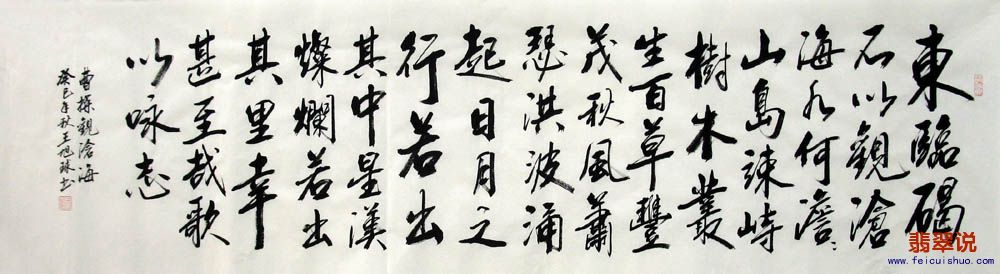 東臨碣
石以觀滄
海水何澹〻
山島竦峙
樹木叢
生百草豐
茂秋風蕭
瑟洪波涌
起日月之
行若出
其中星漢
燦爛若出
其里幸
甚至哉歌
以咏志
曹操觀滄海
癸巳年秋王旭珠書
翡翠说
www.feicuishuo.com